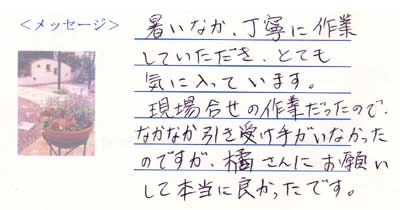 ＜メッセージ＞
暑いなか、丁寧に作業
していただき、とても
気に入っています。
現場合せの作業だったので、
なかなか引き受け手がいなかった
のですが、橘さんにお願い
して本当に良かったです。